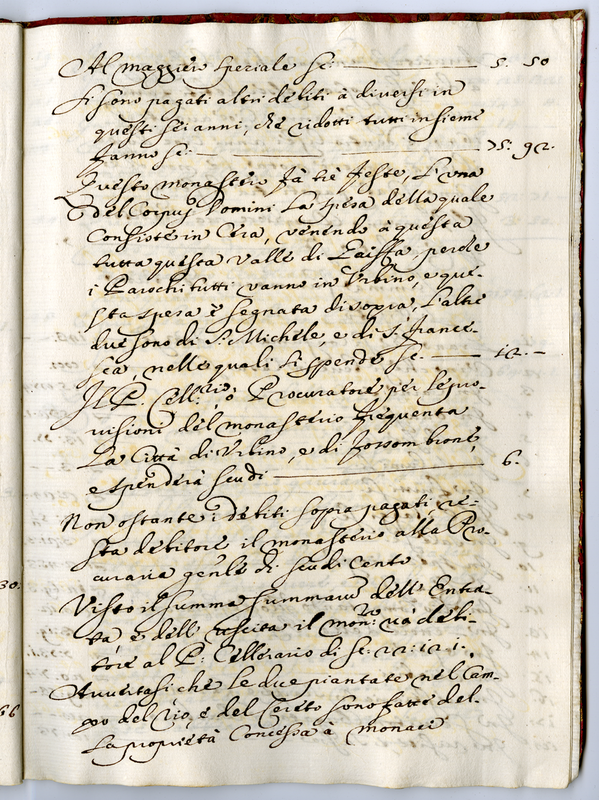 Al maggior speriale sc: 5. 50
Si sono pagati altri debiti à diversi in
questi sei anni, che ridotti tutti insieme
fanno sc. 75. 92.
Questo monastero fà tré feste, Si una
è del Corpus Domini La spesa della quale
Consiste in Cera, venendo à questa
tutta questa Valle di perche
i Parochi tutti vanno in Urbino, e que-
sta spesa è segnata di sopra, l'altre
due sono di S. Michele, e di S. France-
sca, nelle quali si spende sc. 12. –
Il P. Cell:rio, ò Procuratore per le pro-
visioni del monasterio frequenta
La Città di Urbino, e di Fossombrone,
e spenderà scudi 6.
Non ostante i debiti sopra pagati, re-
sta debitore il monasterio alla Pro-
curaria gen:le di scudi Cento
Visto il summa summarum dell'Entra-
ta e dell'uscita il mon:ro và debi-
tore al P: Cellerario di sc:
Avvertasi che le due piantate nel Cam-
po del rio, e del Cereto sono fatte del-
La proprietà Concessa à monaci
30.
66